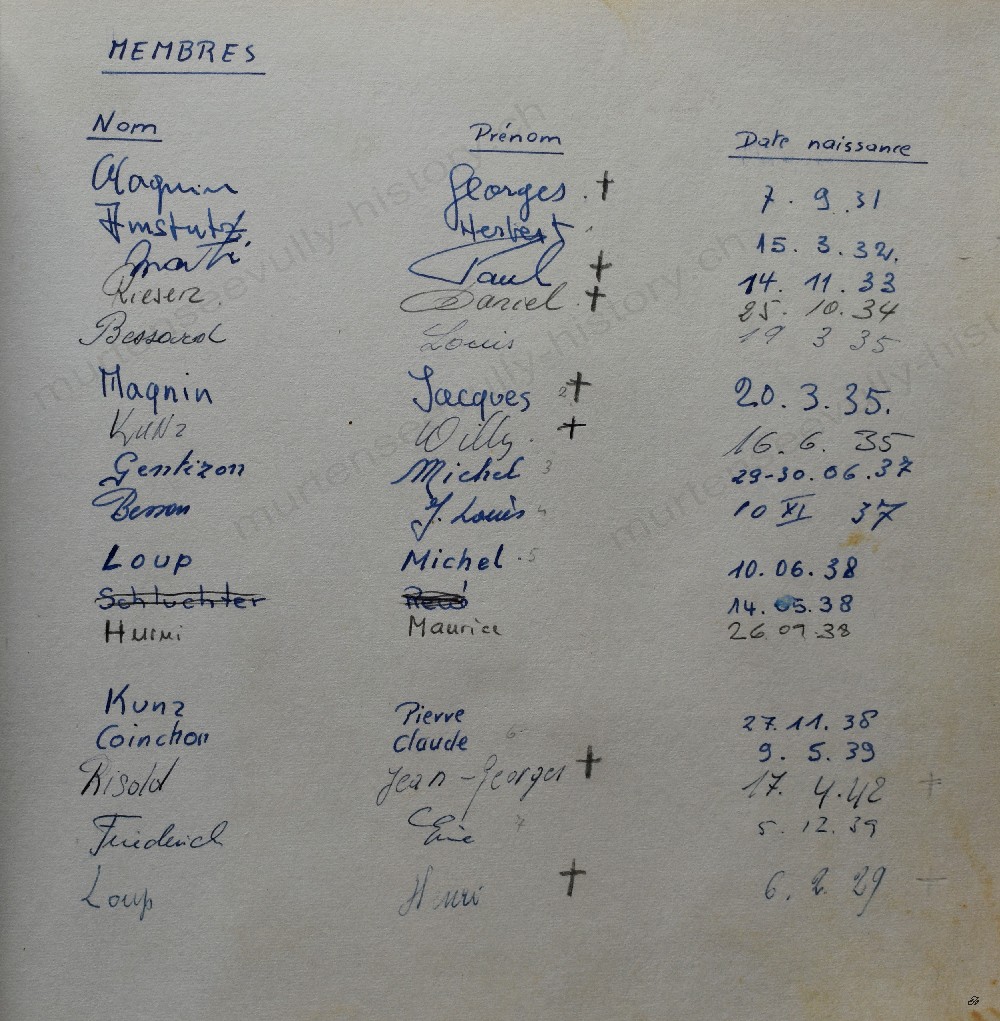 MEMBRES
Nom Prénom Date naissance
Magnin Georges. † 7. 9. 31
Amstutz Herbert 15. 3. 32.
Marti Paul † 14. 11. 33
Rieser. Daniel. † 25. 10. 34
Bessard Louis 19 3 35
Magnin Jacques 2 † 20. 3. 35.
Kunz Willy. † 16. 6. 35
Gentizon Michel 3 29-30. 06. 37
Besson J. Louis 4 10 XI 37
Loup Michel . 5 10. 06. 38
Schluchter René 14. 05. 38
Hurni Maurice 26. 09. 38
Kunz Pierre 27. 11. 38
Coinchon Claude 6 9. 5. 39
Risold Jean-Georges † 17. 4. 42 †
Friederich Eric 7 5. 12. 39
Loup Henri † 6. 2. 29 †
murtenseevully-history.ch